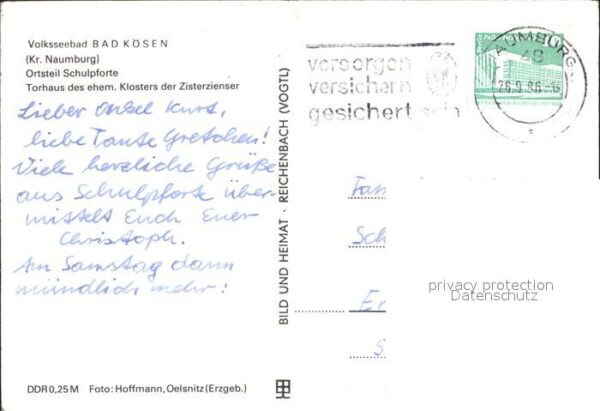 Volksseebad BAD KÖSEN
(Kr. Naumburg)
Ortsteil Schulpforte
Torhaus des ehem. Klosters der Zisterzienser
Lieber Onkel Kurt,
liebe Tante Gretchen!
Viele herzliche Grüße
aus Schulpforte über-
mittelt Euch Euer
Christoph.
Am Samstag dann
mündlich mehr!
DDR 0,25 M Foto: Hoffmann, Oelsnitz (Erzgeb.)
BILD UND HEIMAT · REICHENBACH (VOGTL)
vorsorgen
versichern
gesichert sein
NAUMBURG
48
Fam
Sch
Er
S
privacy protection
Datenschutz